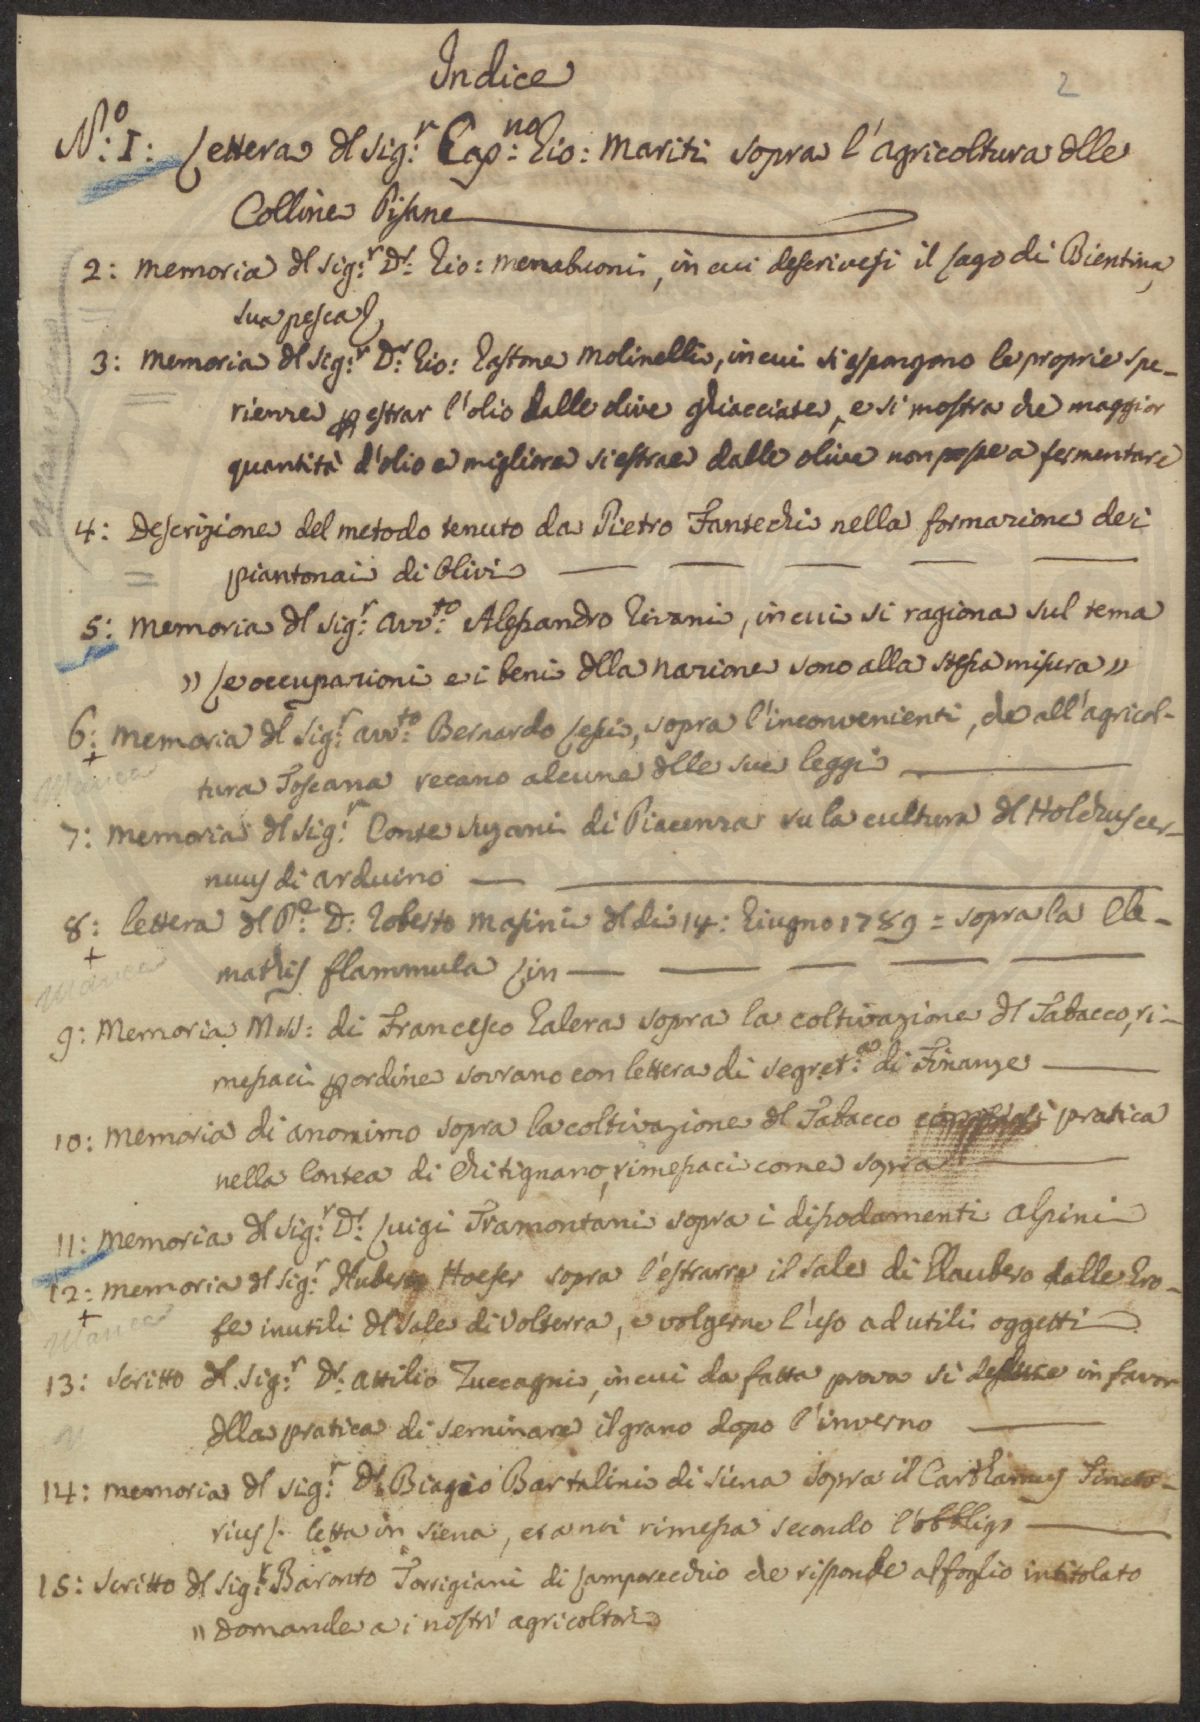 Indice
2
N.º 1: Lettera dl Sig.r Cap.no Gio: Mariti sopra l'agricoltura dlle
Colline Pisane
2: Memoria dl Sig.r D.r Gio: Menabuoni, in cui descrivesi il Lago di Bientina,
sua pesca
3: Memoria dl Sig.r D.r Gio: Gastone Molinelli, in cui si espongono le proprie spe-
rienze p estrar l'olio dalle olive ghiacciate, e si mostra che maggior
quantità d'olio e migliore si estrae dalle olive non posse a fermentare
4: Descrizione del metodo tenuto da Pietro Fantechi nella formazione dei
piantonai di Olivi
5: Memoria dl Sig.r Avv.to Alessandro Rivani, in cui si ragiona sul tema
" Le occupazioni e i beni dlla nazione sono alla stessa misura "
6: Memoria dl Sig.r Avv.to Bernardo Lessi, sopra l'inconvenienti, che all'agricol-
+
Manca
tura Toscana recano alcune dlle sue leggi
7: Memoria dl Sig.r Conte Suzani di Piacenza su la cultura dl Holchus cer-
nuus di Arduino
8: Lettera dl P.e D: Roberto Masini dl di 14: Giugno 1789 = sopra la Cle-
+
Manca
mathis flammula Lin
9: Memoria Mss: di Francesco Galera sopra la coltivazione dl Tabacco, ri-
messaci p ordine sovrano con lettera di segret.ao di Finanze
10: Memoria di anonimo sopra la coltivazione dl Tabacco pratica
nella Contea di Chitignano, rimessaci come sopra
11: Memoria dl Sig.r D.r Luigi Tramontani sopra i dissodamenti alpini
12: Memoria dl Sig.r Huberto Hoefer sopra l'estrarre il sale di Glaubero dalle Gro-
+
Manca
fe inutili dl sale di Volterra, e volgerne l'uso ad utili oggetti
13: Scritto dl Sig.r D.r Attilio Zuccagni, in cui da fatta prova si deduce in favor
dlla pratica di seminare il grano dopo l'inverno
14: Memoria dl Sig.r D.r Biagio Bartalini di Siena sopra il Carthamus Tincto-
rius L. letta in Siena, et a noi rimessa secondo l'obbligo
15: Scritto dl Sig.r Baronto Torrigiani di Lamporecchio che risponde al foglio intitolato
" Domande a i nostri agricoltori